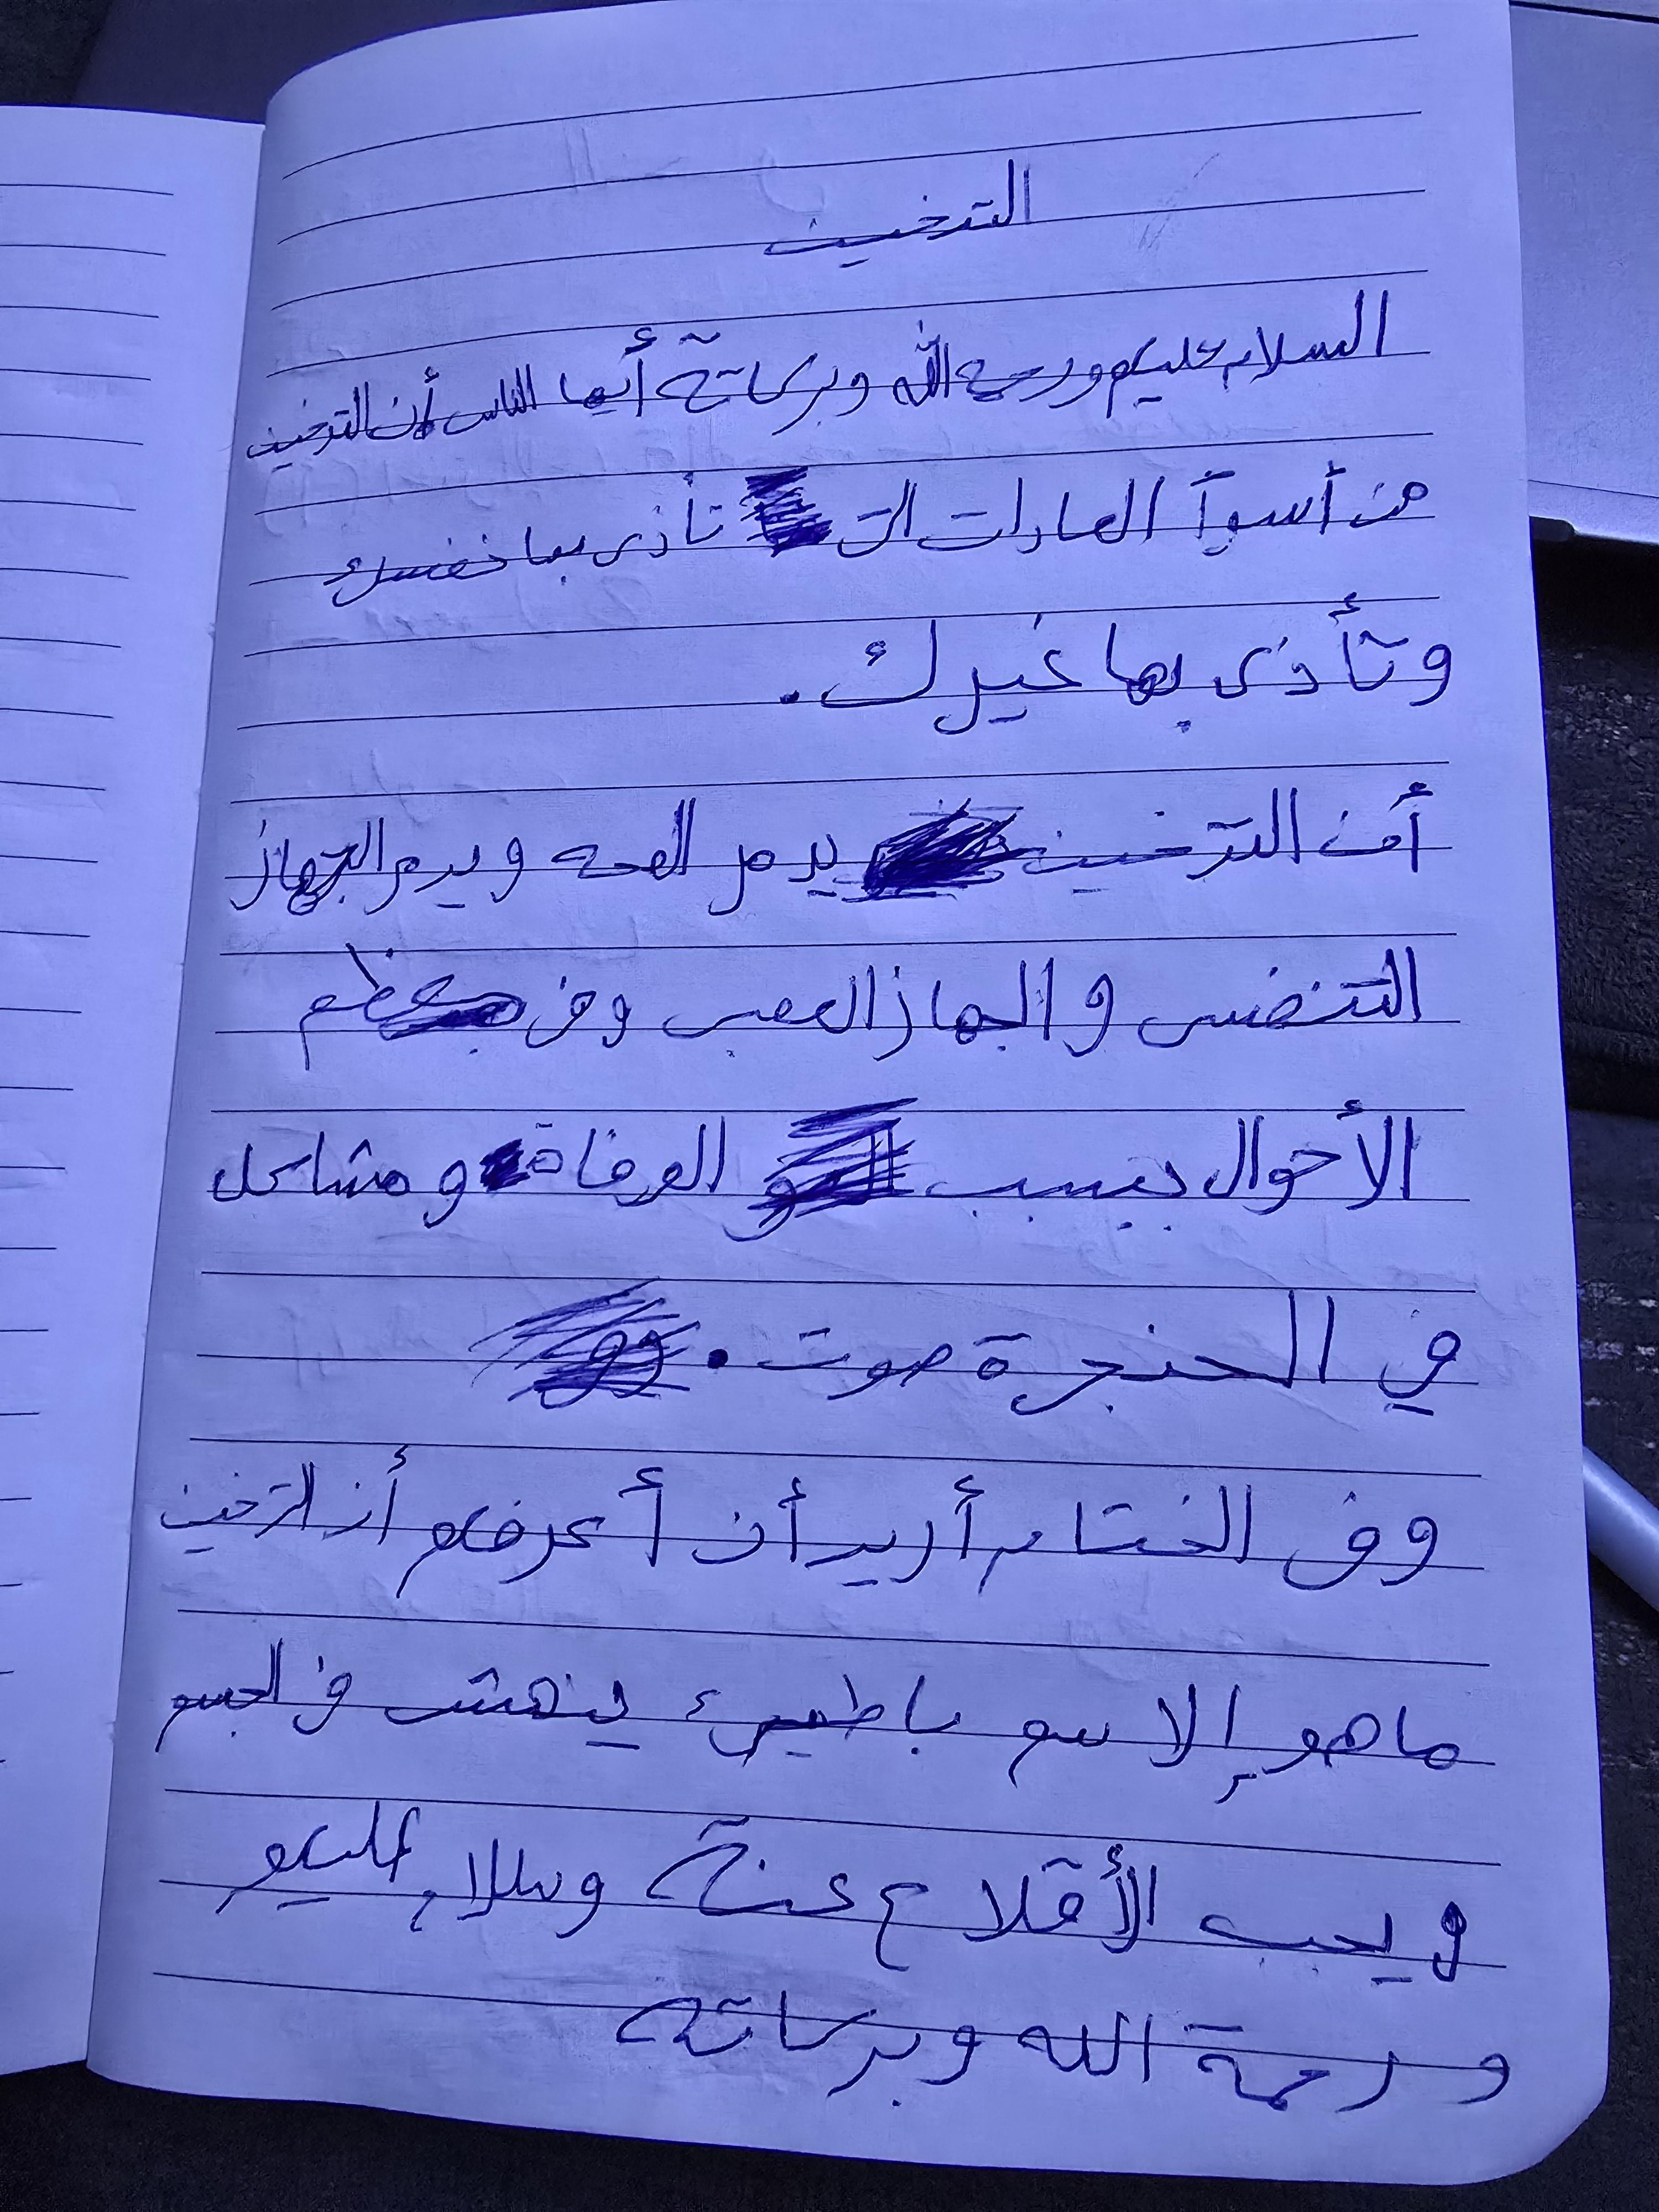 التدخين
السلام عليكم ورحمة الله وبركاتة أيها الناس أن التدخين
من أسوآ العادات التى تأذى بها نفسك
وتأذى بها غيرك.
أن التدخين يدمر الصحه ويدمر الجهاز
التنفسى والجهاز العصبى وفى معظم
الأحوال يسبب الوفاة ومشاكل
في الحنجرة صوت.
وفى الختام أريد أن أعرفكم أن التدخين
ما هو إلا سم باطيء ينهش في الجسم
ويجب الأقلاع عنة وسلام عليكم
ورحمة الله وبركاتة